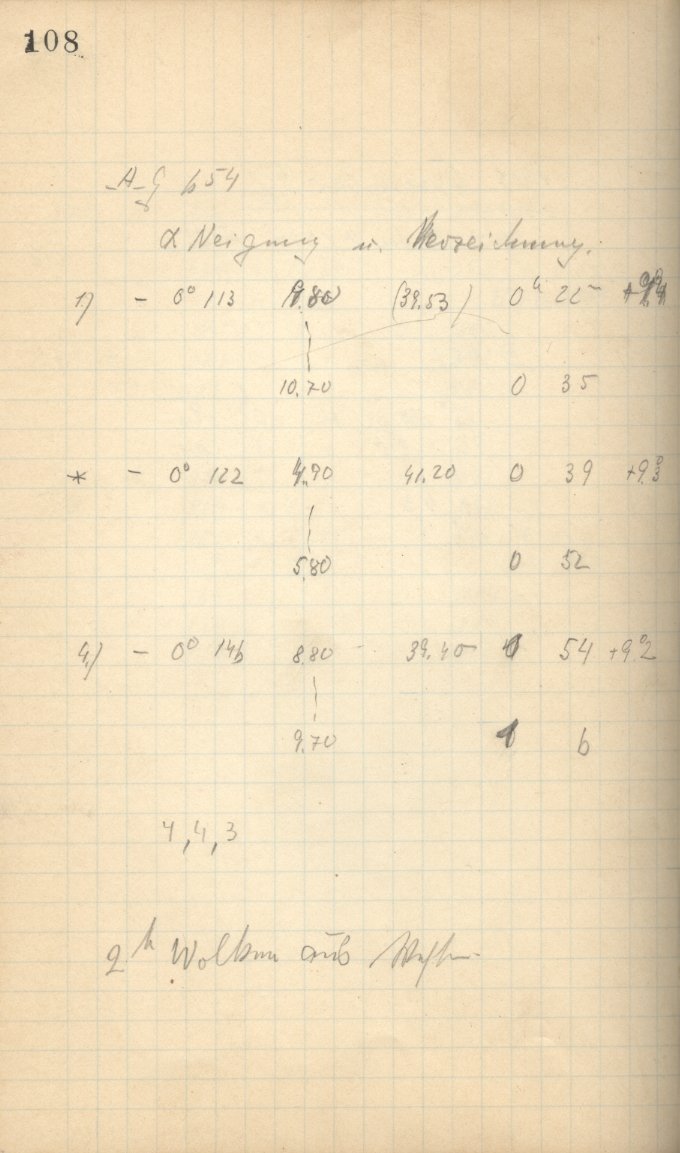 108
A.G. 654
α Neigung u. Verzeichnung.
1) - 0° 113 9.80 (39.53) 0h 22m
10.70 0 35
* - 0° 122 4.90 41.20 0 39 +9°.3
5.80 0 52
4) - 0° 146 8.80 39.40 0 54 +9°.2
9.70 1 6
4, 4, 3
2h Wolken aus Westen